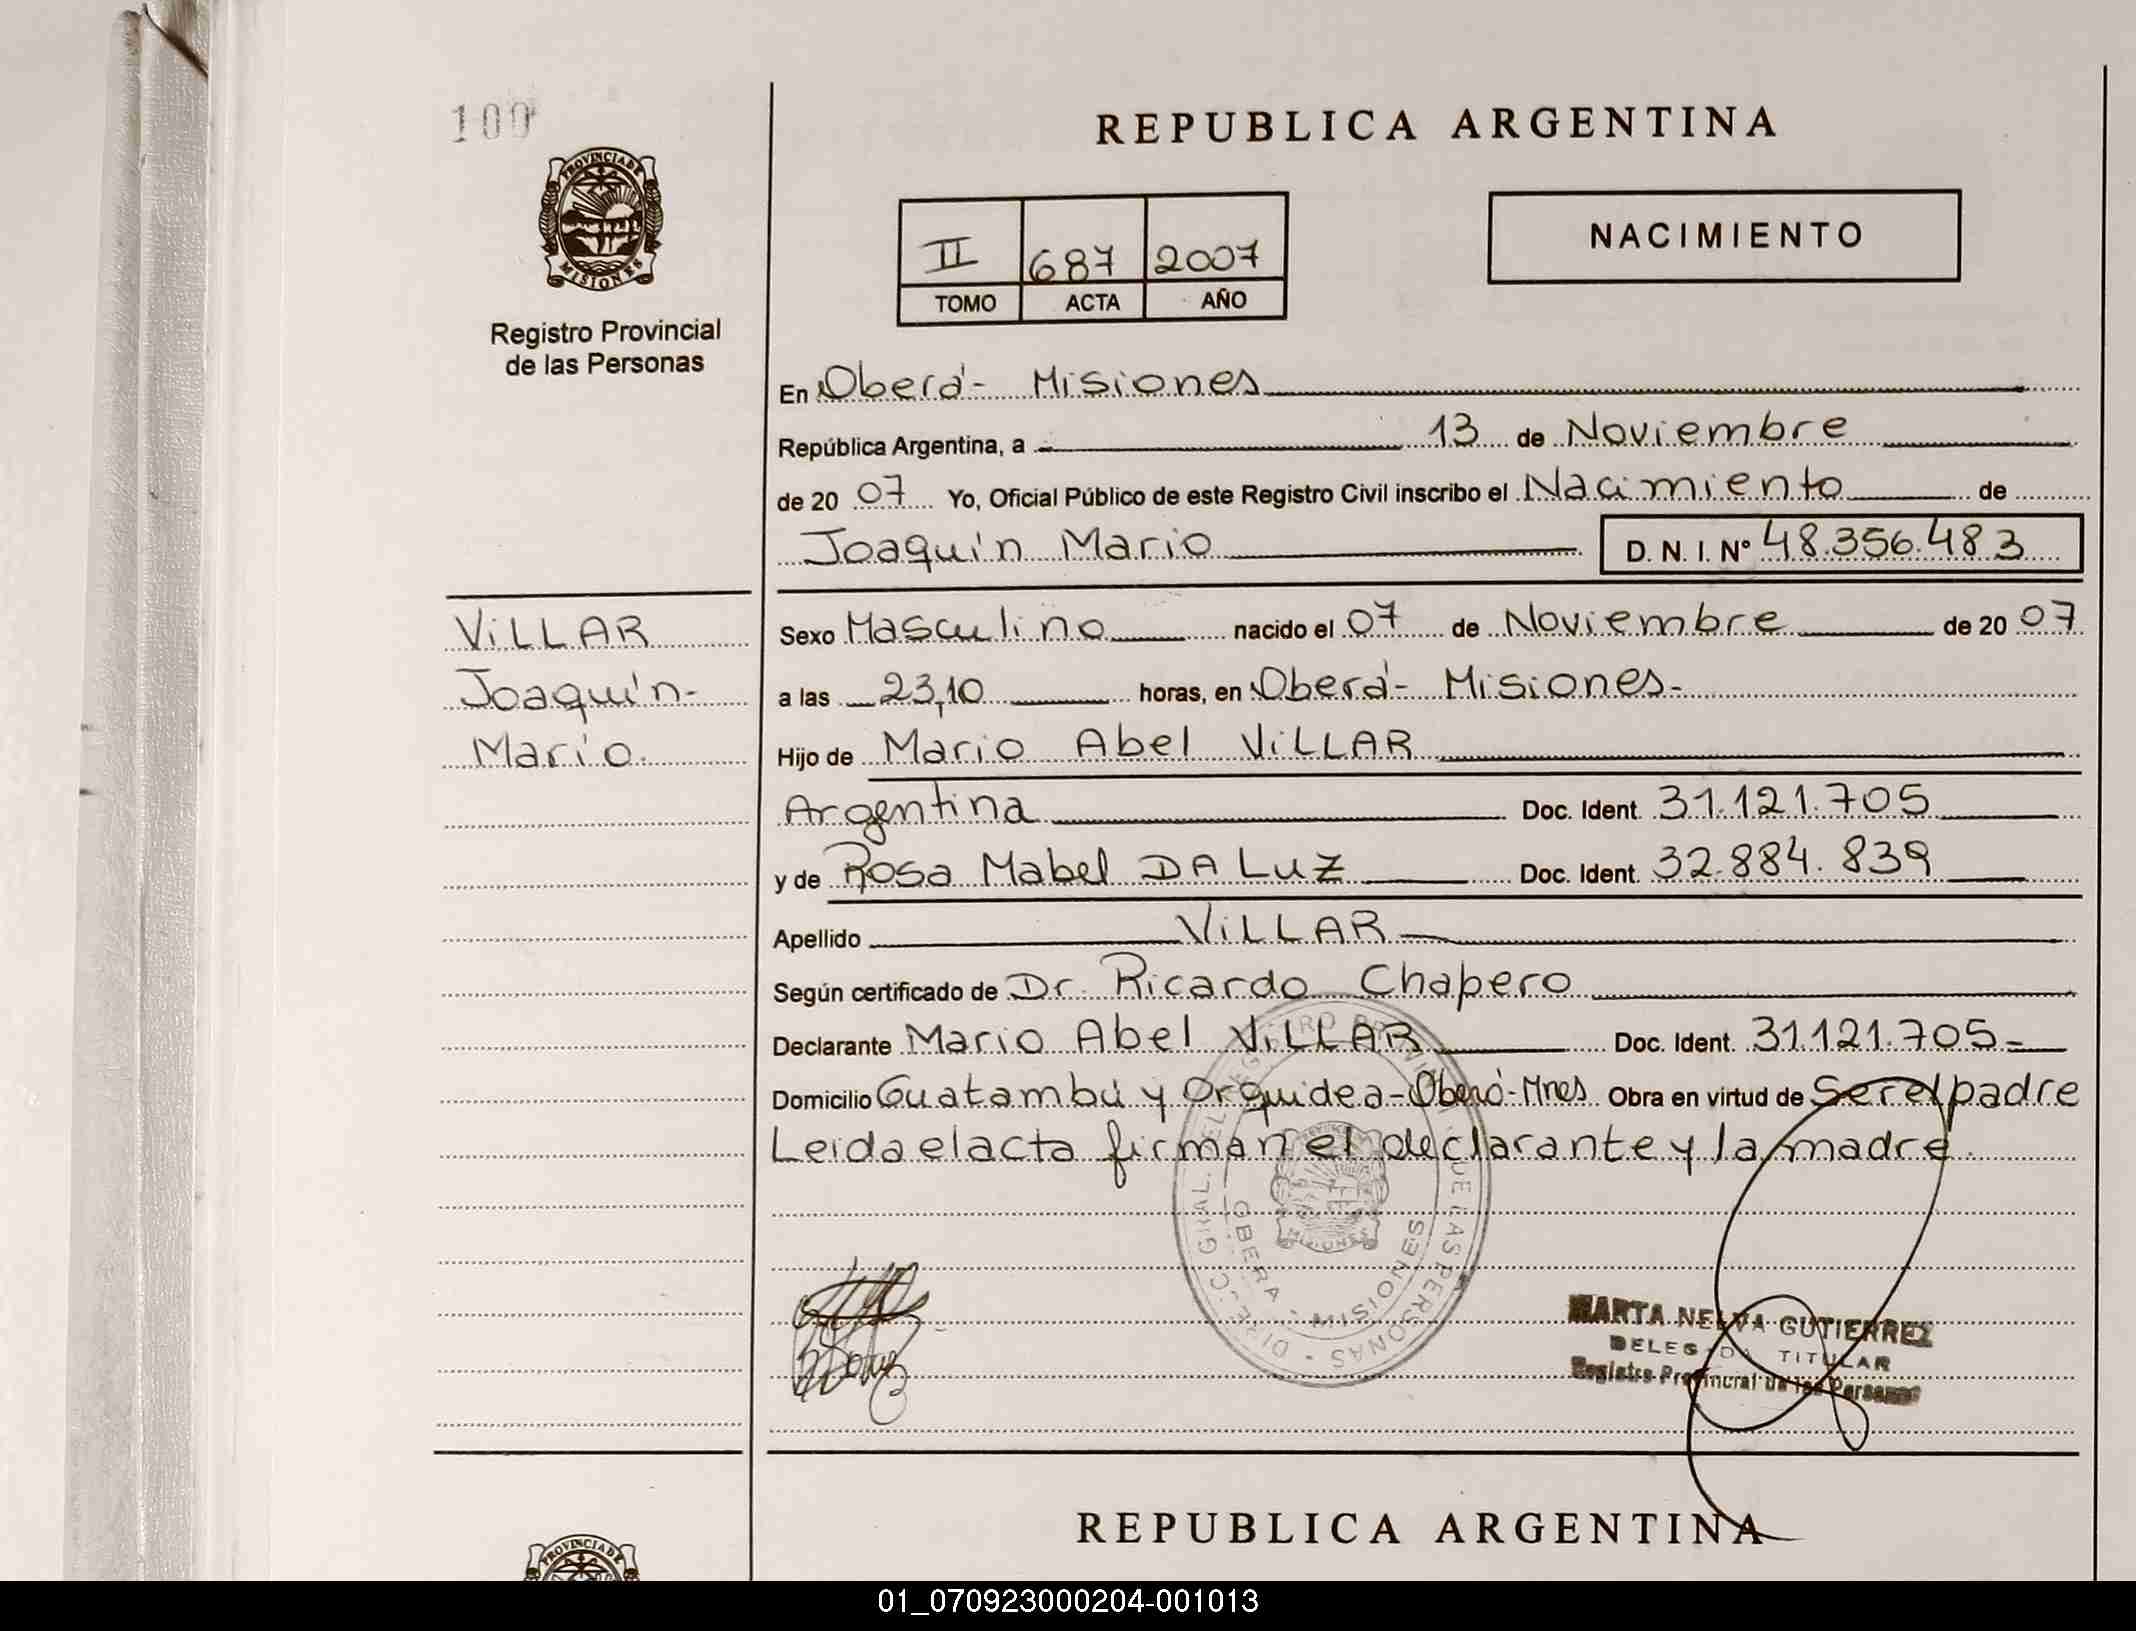 100
REPUBLICA ARGENTINA
PROVINCIA DE
MISIONES
Registro Provincial
de las Personas
II 687 2007
TOMO ACTA AÑO
NACIMIENTO
En Oberá- Misiones
República Argentina, a 13 de Noviembre
de 20 07 Yo, Oficial Público de este Registro Civil inscribo el Nacimiento de
Joaquín Mario D. N. I. Nº 48.356.483
VILLAR
Joaquín-
Mario.
Sexo Masculino nacido el 07 de Noviembre de 20 07
a las 23,10 horas, en Oberá- Misiones-
Hijo de Mario Abel VILLAR
Argentina Doc. Ident. 31.121.705
y de Rosa Mabel DA LUZ Doc. Ident. 32.884.839
Apellido VILLAR
Según certificado de Dr. Ricardo Chapero
Declarante Mario Abel VILLAR Doc. Ident. 31.121.705-
Domicilio Guatambú y Orquidea-Oberá-Mnes Obra en virtud de ser el padre
Leida el acta firman el declarante y la madre.
OBERA - MISIONES
MISIONES
MARTA NELVA GUTIERREZ
DELEGADA TITULAR
Registro Provincial de las Personas
REPUBLICA ARGENTINA
PROVINCIA DE
01_070923000204-001013